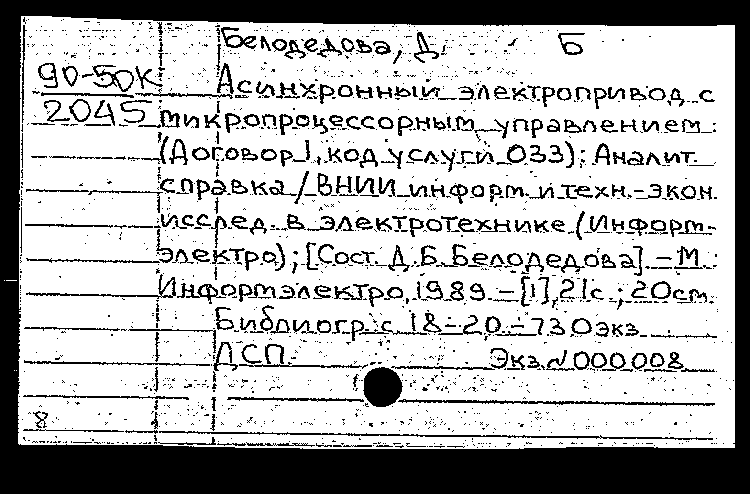 Белодедова, Д. Б
90-50К
2045
Асинхронный электропривод с
микропроцессорным управлением:
(Договор 1, код услуги 033); Аналит.
справка / ВНИИ информ. и техн.-экон.
исслед. в электротехнике (Информ-
электро); [Сост. Д.Б. Белодедова]. - М.:
Информэлектро, 1989. - [1], 21с.; 20см.
Библиогр. с. 18-20. - 730экз.
ДСП. Экз. № 000008
8